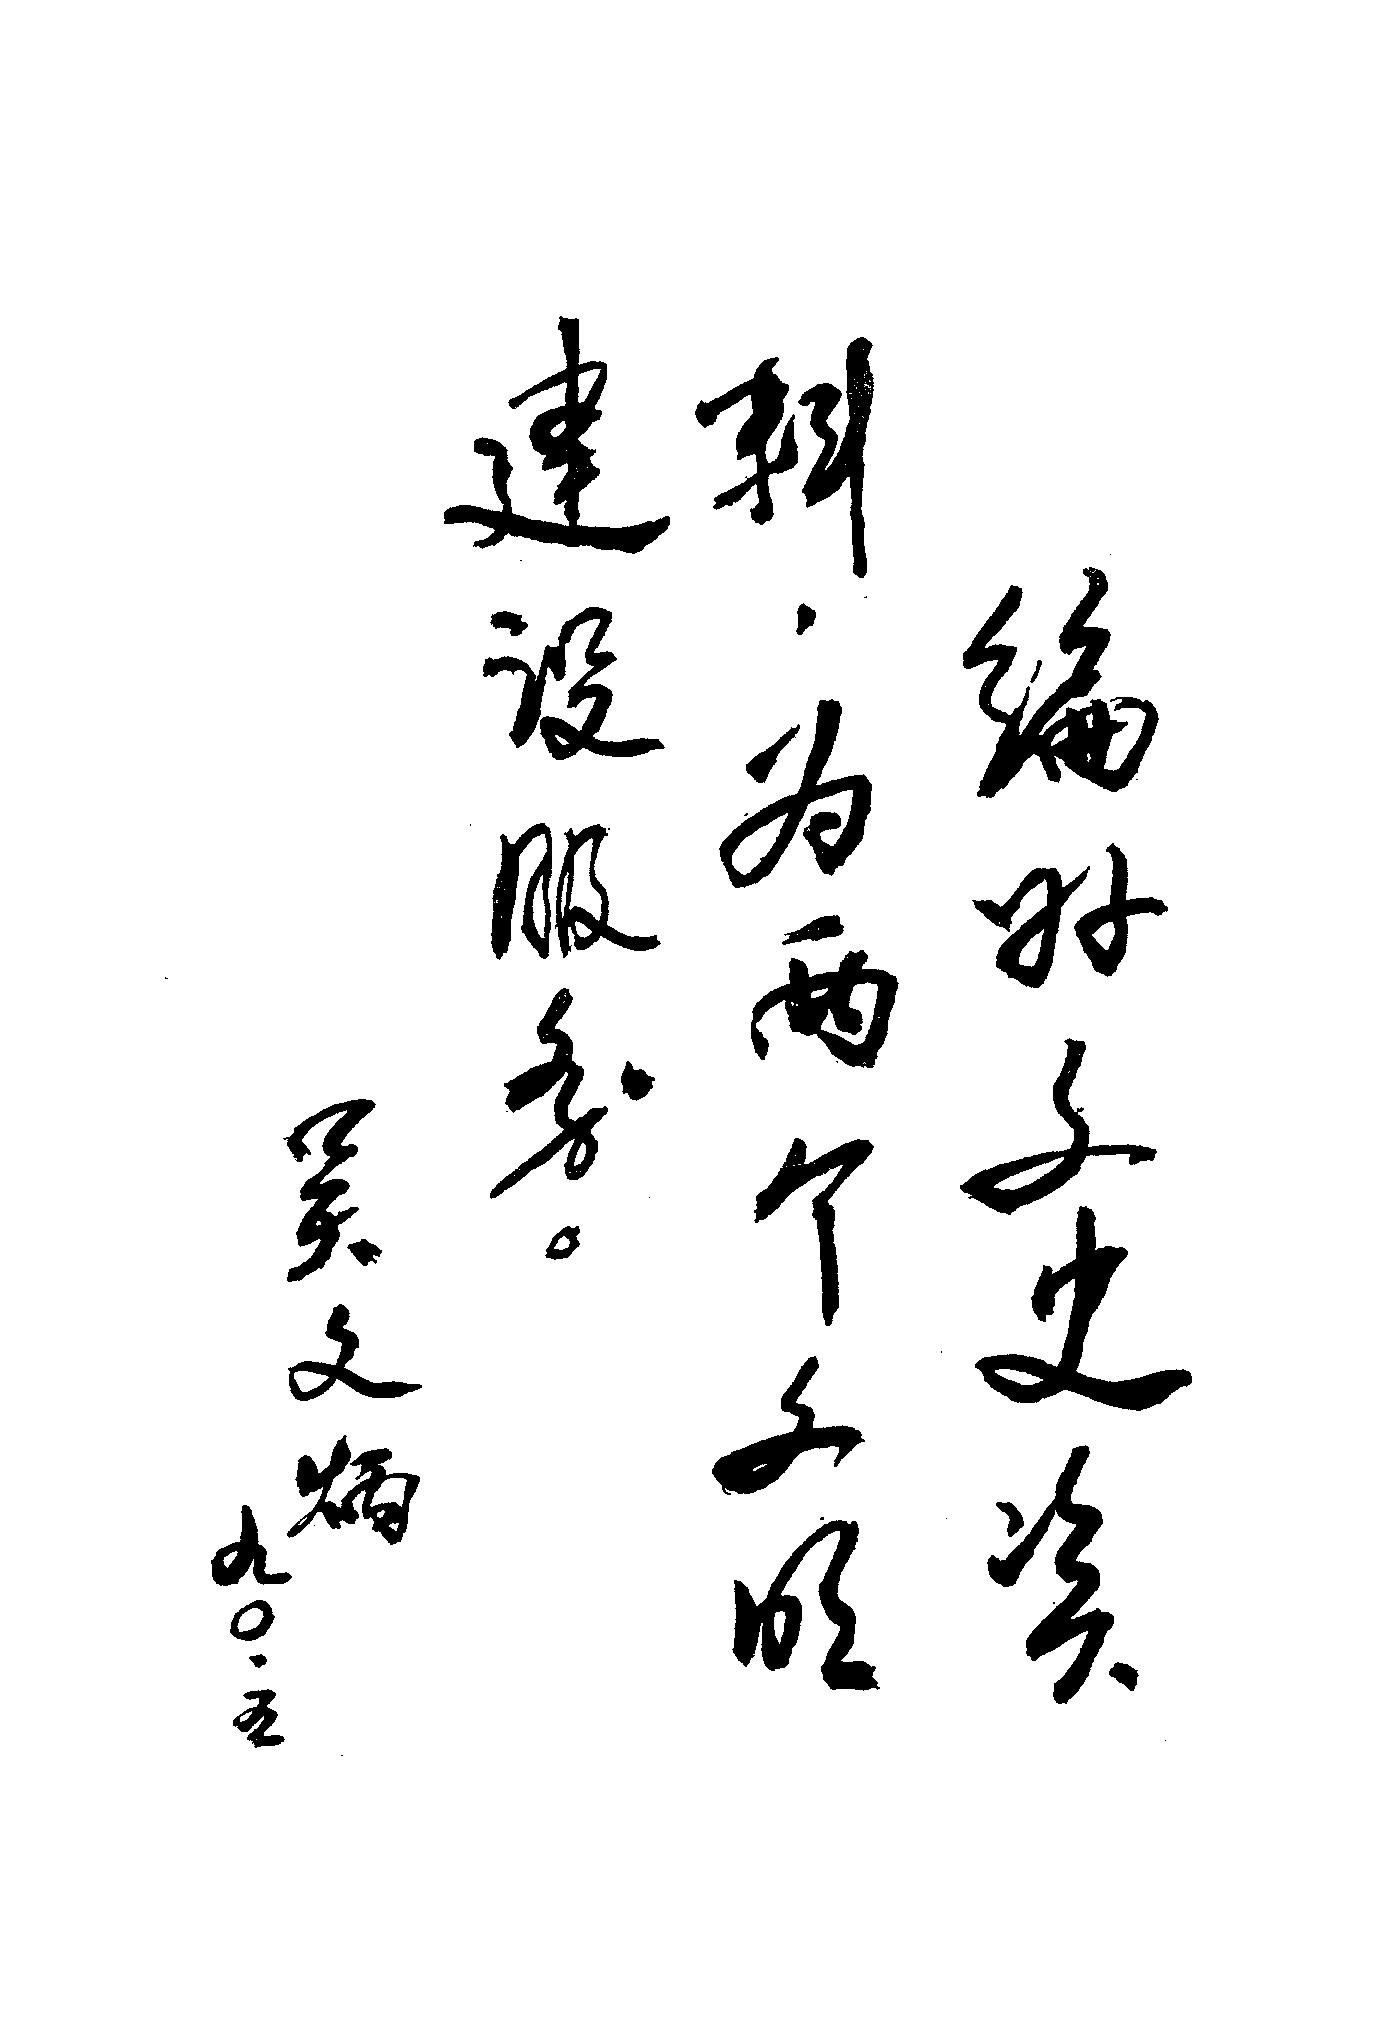 编好文史资
料，为两个文明
建设服务。
吴文炳
九〇·五